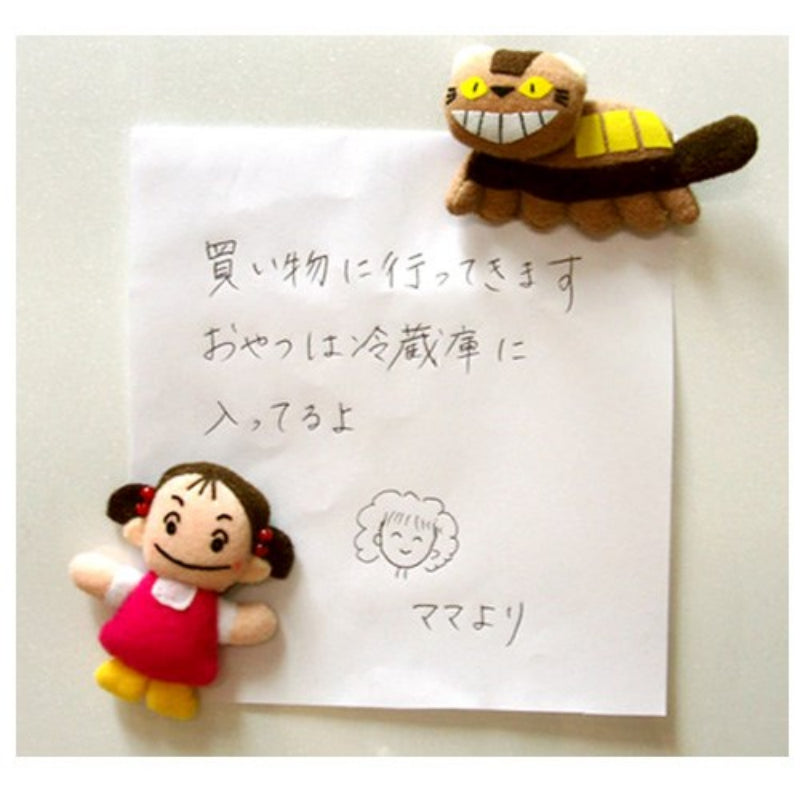 買い物に行ってきます
おやつは冷蔵庫に
入ってるよ
ママより